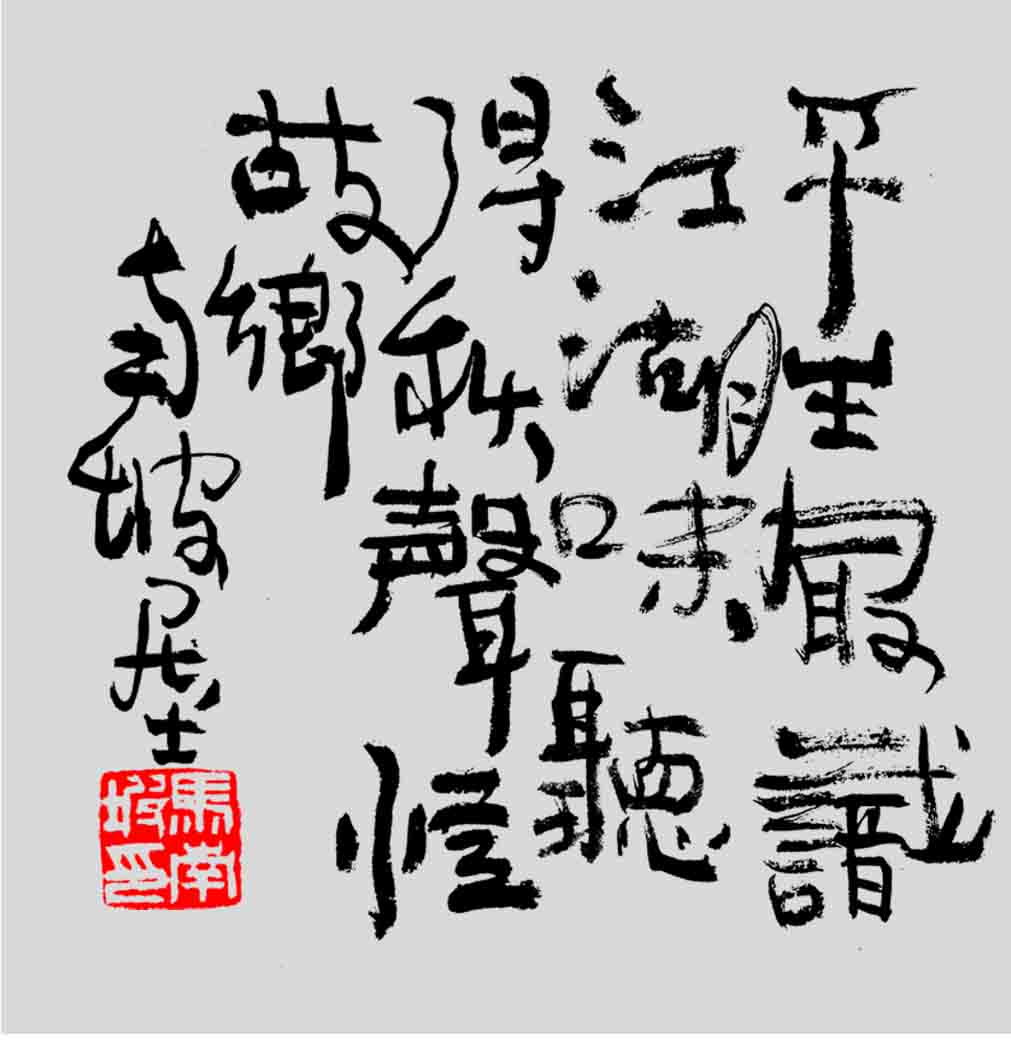 平生最識
江湖味聽
得秋聲憶
故鄉
南坡居士
馬南坡印